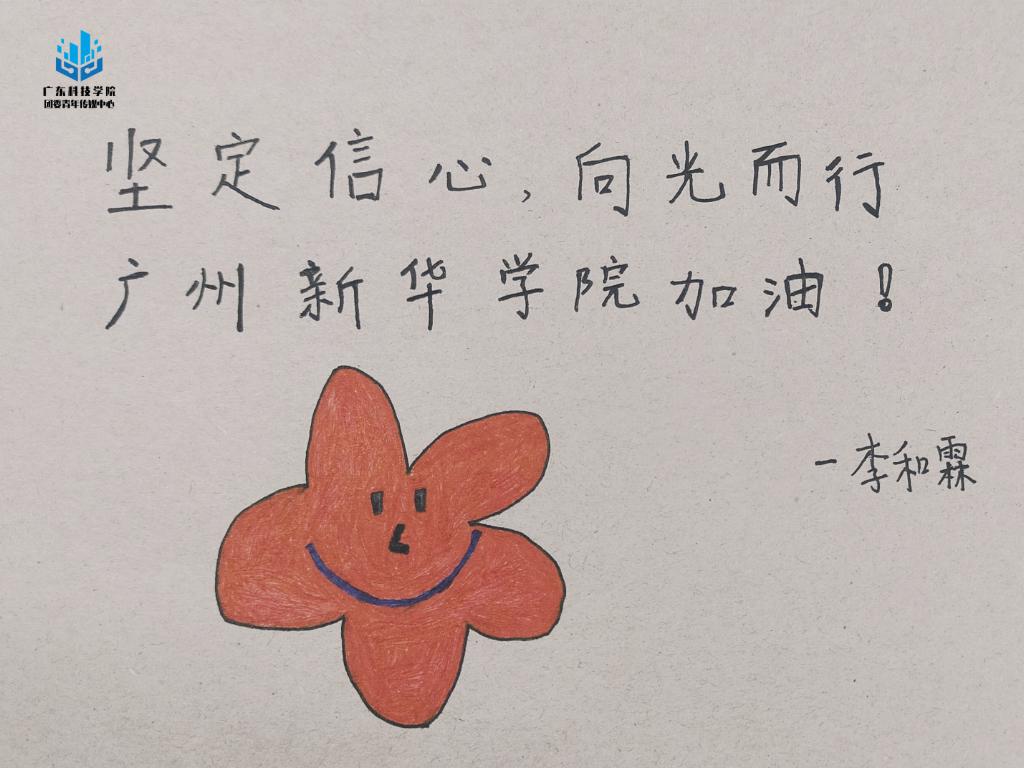 广东科技学院
团委青年传媒中心
坚定信心,向光而行
广州新华学院加油!
-李和霖